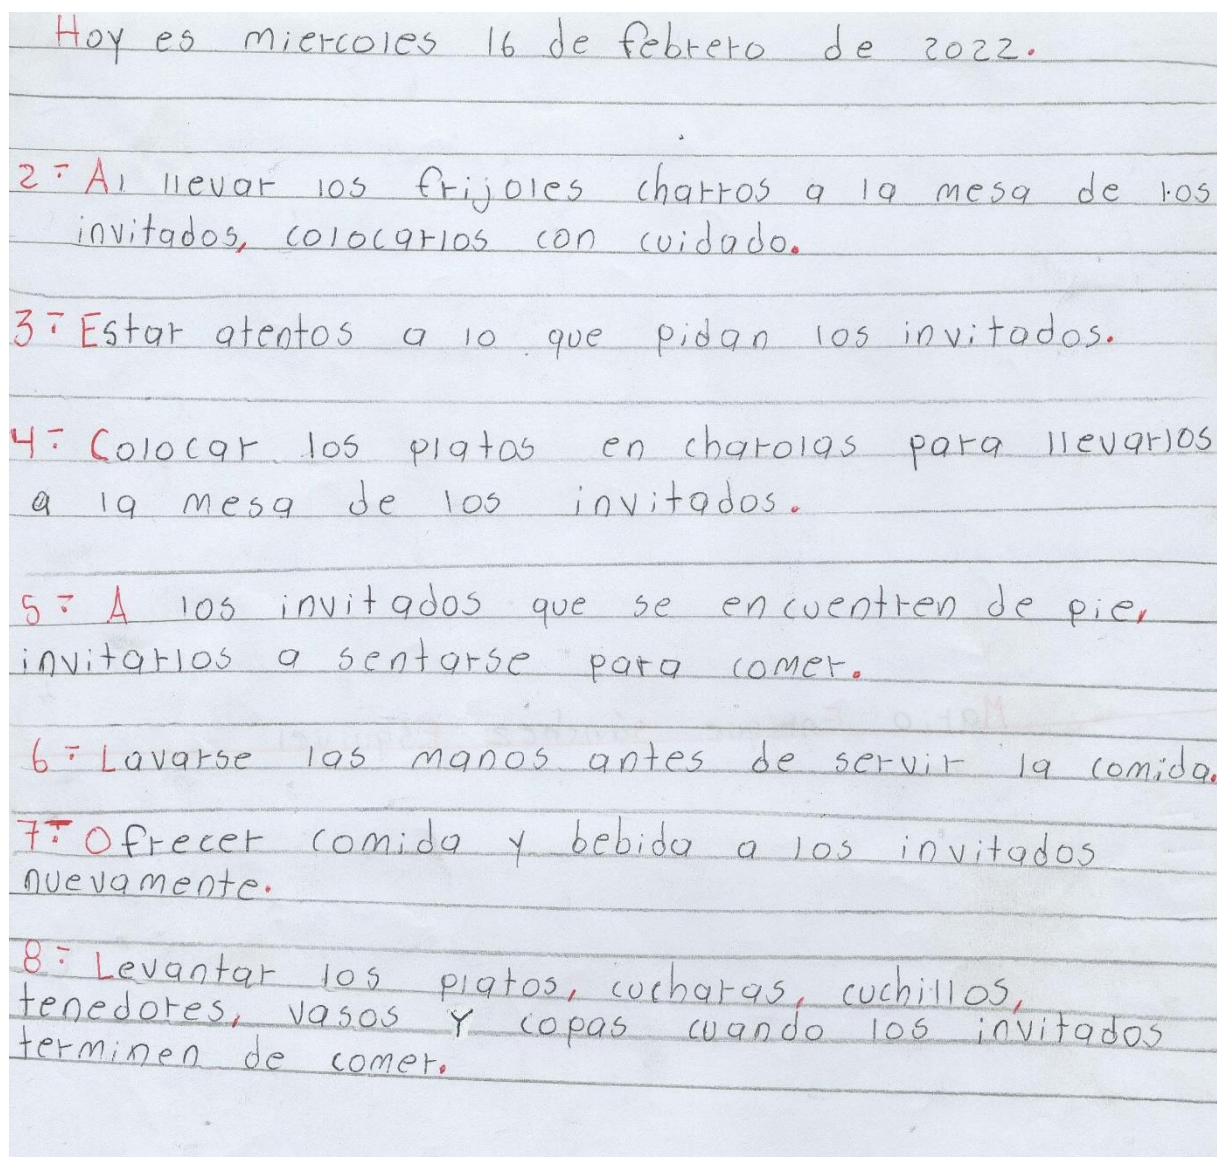 Hoy es miercoles 16 de febrero de 2022.
2.- Al llevar los frijoles charros a la mesa de los
invitados, colocarlos con cuidado.
3.- Estar atentos a lo que pidan los invitados.
4.- Colocar los platos en charolas para llevarlos
a la mesa de los invitados.
5.- A los invitados que se encuentren de pie,
invitarlos a sentarse para comer.
6.- Lavarse las manos antes de servir la comida.
7.- Ofrecer comida y bebida a los invitados
nuevamente.
8.- Levantar los platos, cucharas, cuchillos,
tenedores, vasos y copas cuando los invitados
terminen de comer.